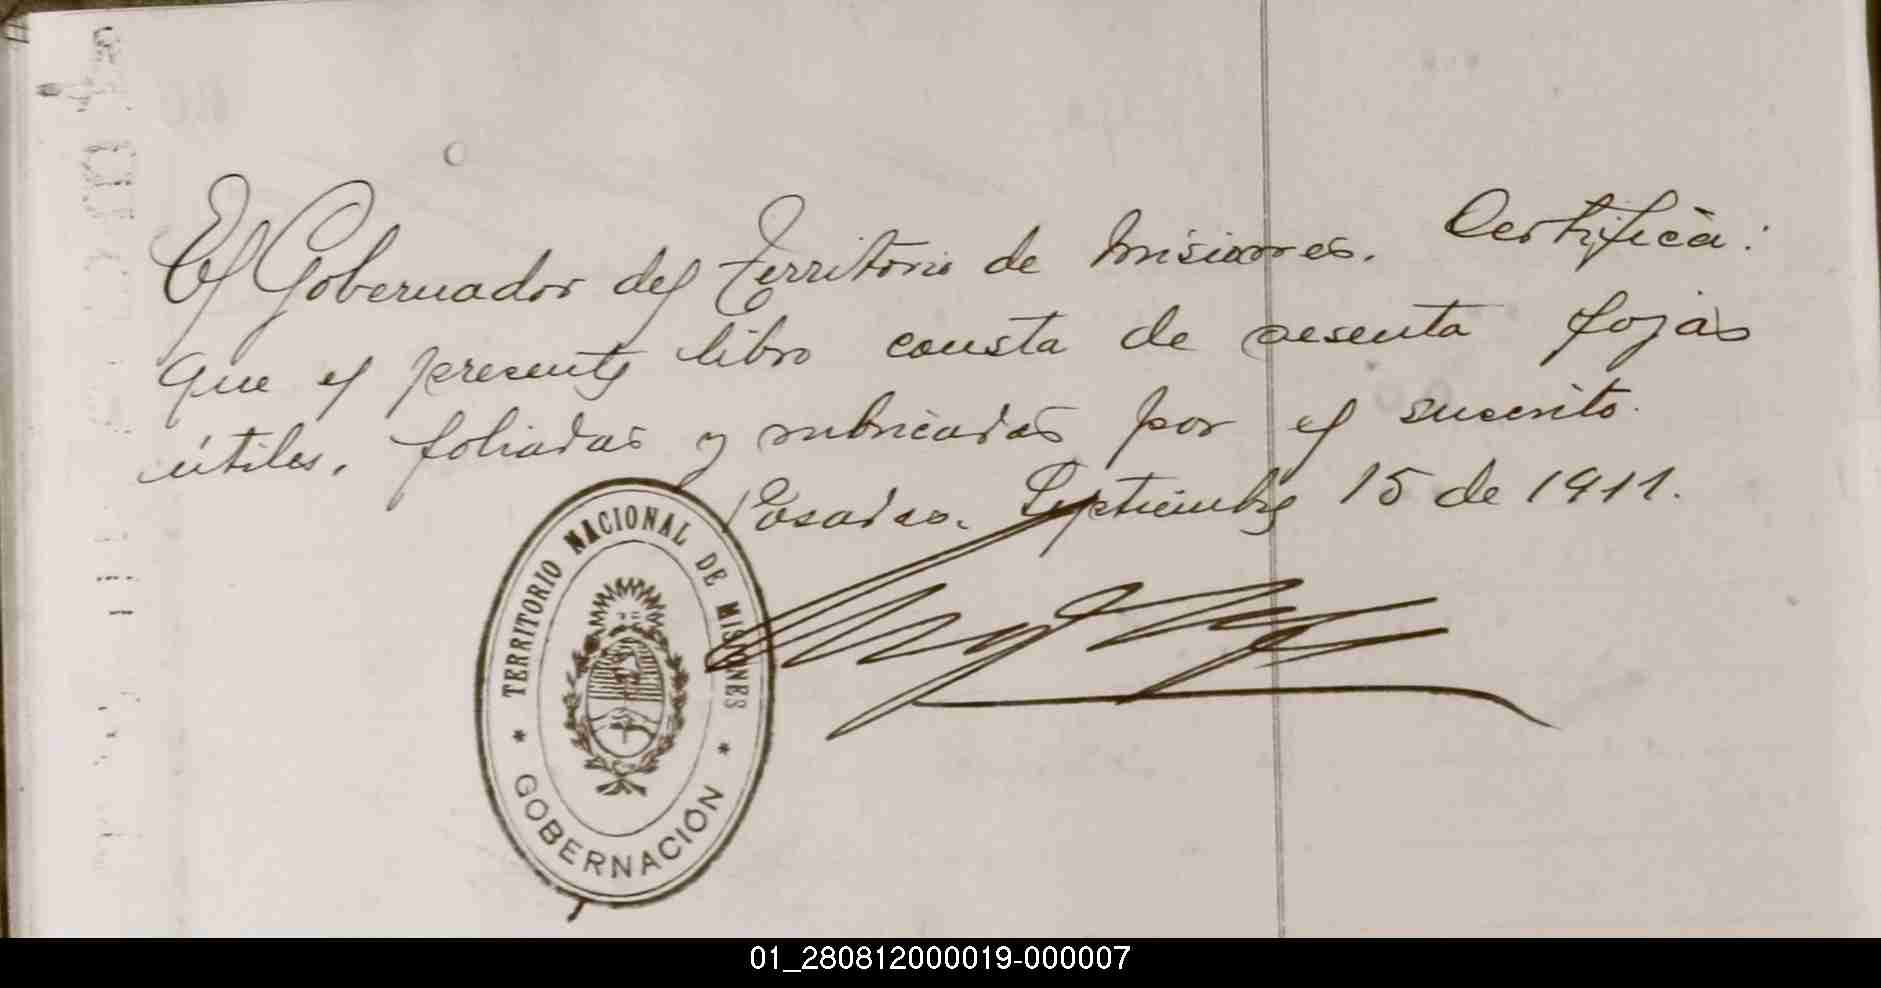 El Gobernador del Territorio de Misiones. Certifica:
que el presente libro consta de sesenta fojas
útiles, foliadas y rubricadas por el suscrito.
Posadas, Septiembre 15 de 1911.
TERRITORIO NACIONAL DE MISIONES
* GOBERNACIÓN *
01_280812000019-000007